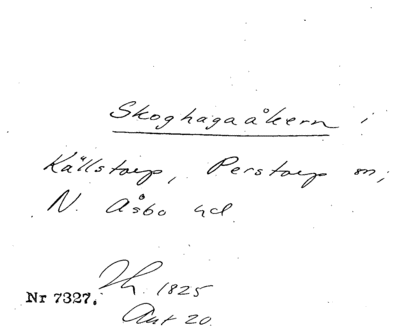 Skoghagaåkern i
Källstorp, Perstorp sn,
N. Åsbo hd
Th. 1825
Nr 7327.
Akt 20.